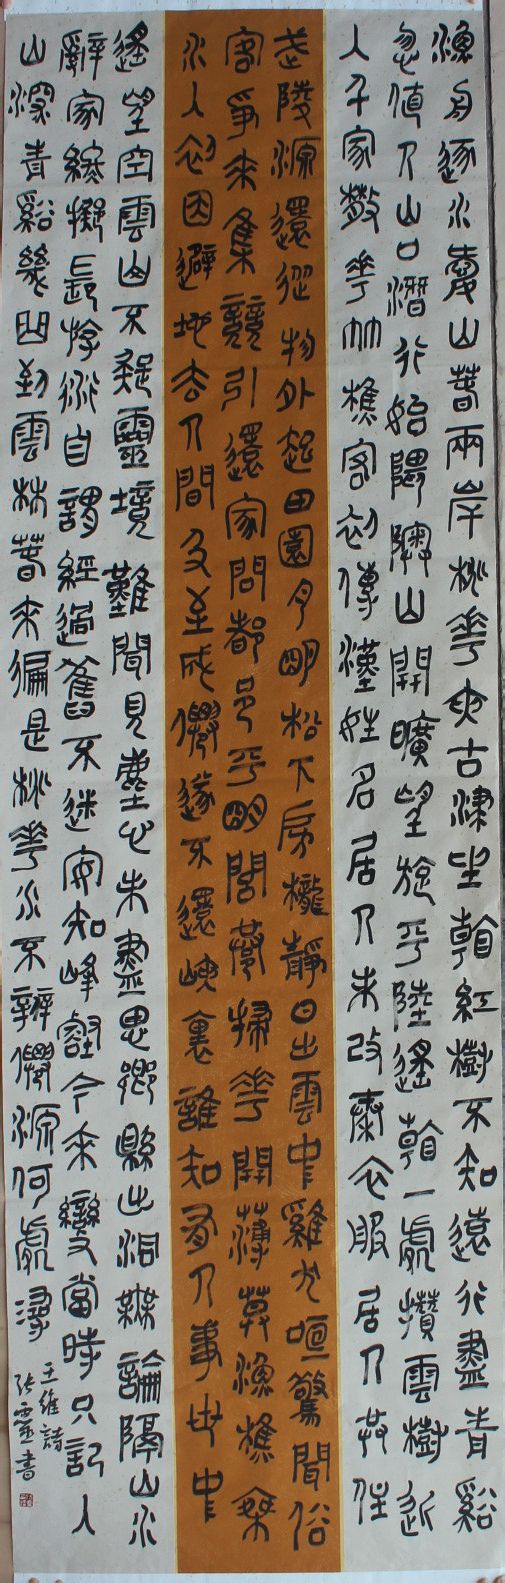 漁舟逐水愛山春兩岸桃花夾古津坐看紅樹不知遠行盡青谿
忽值人山口潛行始隈隩山開曠望旋平陸遙看一處攢雲樹近
入千家散花竹樵客初傳漢姓名居人未改秦衣服居人共住
武陵源還從物外起田園月明松下房櫳靜日出雲中雞犬喧驚聞俗
客爭來集競引還家問都邑平明閭巷掃花開薄暮漁樵乘
水入初因避地去人間及至成仙遂不還峽裏誰知有人事世中
遙望空雲山不疑靈境難聞見塵心未盡思鄉縣出洞無論隔山水
辭家終擬長游衍自謂經過舊不迷安知峰壑今來變當時只記入
山深青谿幾曲到雲林春來徧是桃花水不辨仙源何處尋
王維詩
張靈書